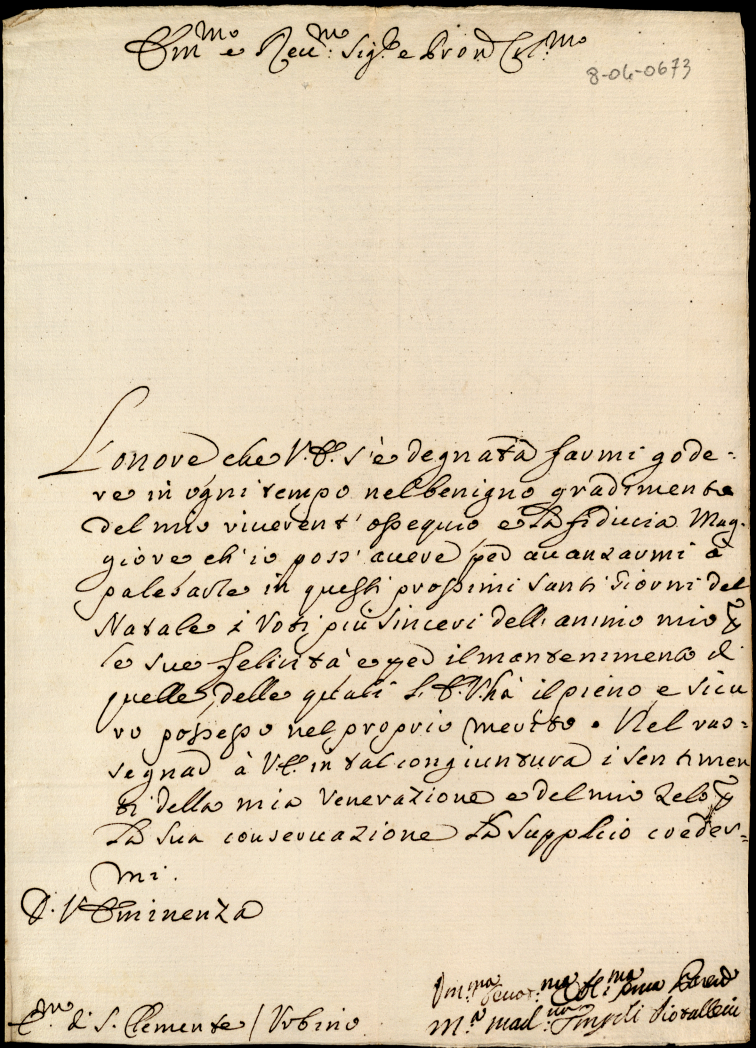 Em.mo e Reu.mo Sig.r e Pron Col.mo
8-04-0673
L'onore che V.E. s'è degnata farmi gode-
re in ogni tempo nel benigno gradimento
del mio riuerent' ossequio e la fiducia Mag-
giore ch'io poss' auere per auanzarmi à
palesarle in questi prossimi Santi Giorni del
Natale i Voti più sinceri dell animo mio p
le sue felicità e per il mantenimento di
quelle, delle quali L'E.V. hà il pieno e sicu
ro possesso nel proprio merito. Nel ras=
segnar à V.E. in tal congiuntura i sentimen
ti della mia Venerazione e del mio Zelo p
La sua conseruazione La supplico creder=
mi.
D. V Eminenza
Um.ma Deuot.ma Obl.ma
C.mo di S. Clemente / Urbino
M.a Mad.